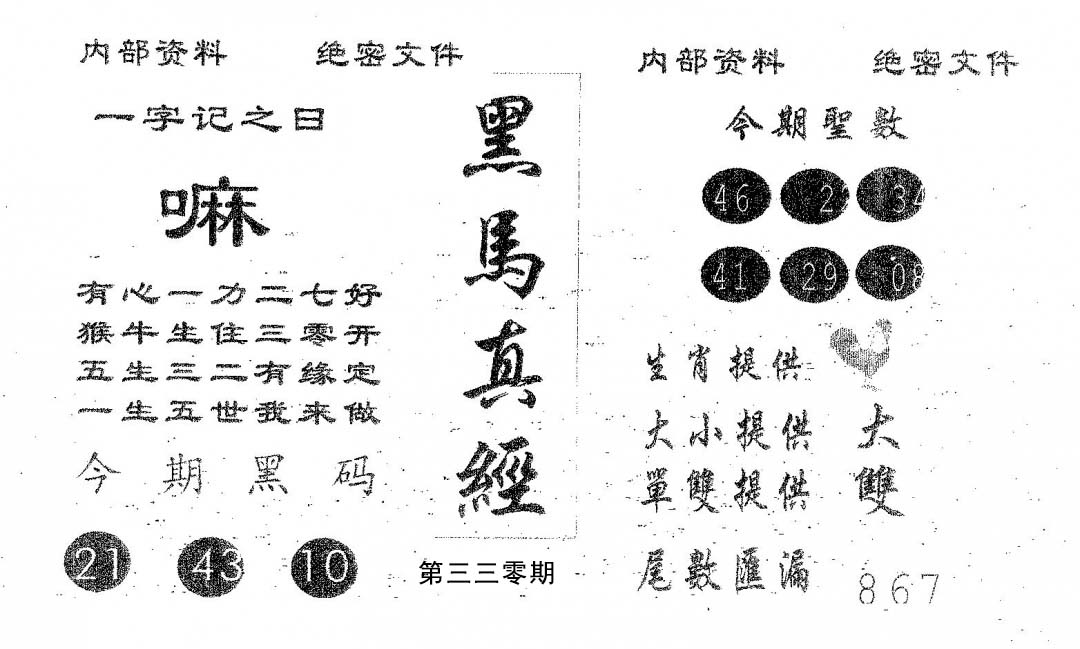 内部资料 绝密文件
一字记之日
嘛
有心一力二七好
猴牛生住三零开
五生三二有缘定
一生五世我来做
今期黑码
21 43 10
黑馬真經
第三三零期
内部资料 绝密文件
今期聖數
46 34
41 29 08
生肖提供
大小提供 大
單雙提供 雙
尾數匯漏 867